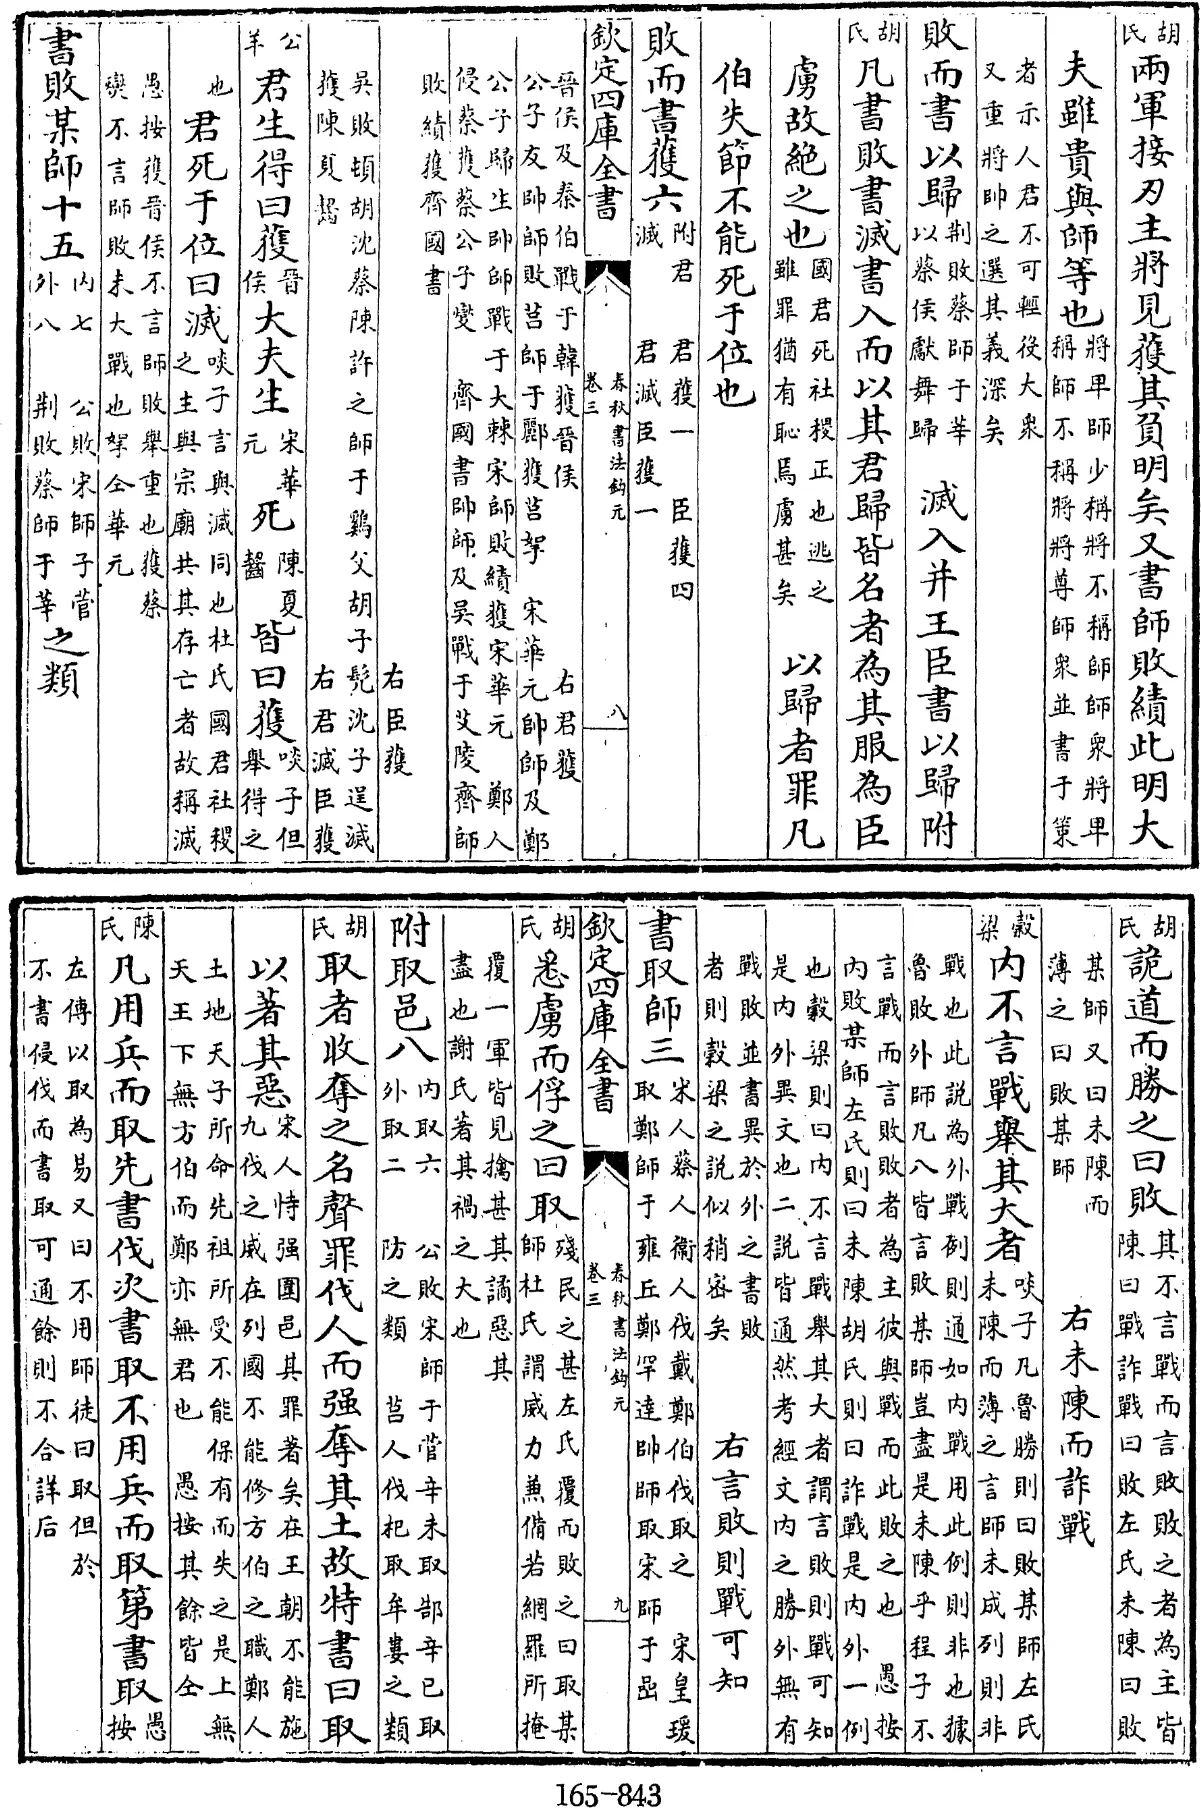 胡氏 兩軍接刃主將見獲其負明矣又書師敗績此明大
夫雖貴與師等也 將卑師少稱將不稱師師衆將卑
稱師不稱將將尊師衆並書于策
者示人君不可輕役大衆
又重將帥之選其義深矣
敗而書以歸 荆敗蔡師于莘
以蔡侯獻舞歸 滅入并王臣書以歸附
胡氏 凡書敗書滅書入而以其君歸皆名者為其服為臣
虜故絶之也 國君死社稷正也逃之
雖罪猶有恥焉虜甚矣 以歸者罪凡
伯失節不能死于位也
敗而書獲六 附君滅 君獲一 臣獲四
君滅臣獲一
欽定四庫全書 春秋書法鈎元 卷三 八
晉侯及秦伯戰于韓獲晉侯 右君獲
公子友帥師敗莒師于酈獲莒挐 宋華元帥師及鄭
公子歸生帥師戰于大棘宋師敗績獲宋華元 鄭人
侵蔡獲蔡公子燮 齊國書帥師及吳戰于艾陵齊師
敗績獲齊國書 右臣獲
吳敗頓胡沈蔡陳許之師于鷄父胡子髠沈子逞滅
獲陳夏齧 右君滅臣獲
公羊 君生得曰獲 晉侯 大夫生 宋華元 死 陳夏齧 皆曰獲 啖子但
舉得之
也 君死于位曰滅 啖子言與滅同也杜氏國君社稷
之主與宗廟共其存亡者故稱滅
愚按獲晉侯不言師敗舉重也獲蔡
燮不言師敗未大戰也挐仝華元
書敗某師十五 内七外八 公敗宋師于菅
荆敗蔡師于莘 之類
胡氏 詭道而勝之曰敗 其不言戰而言敗敗之者為主皆
陳曰戰詐戰曰敗左氏未陳曰敗
某師又曰未陳而
薄之曰敗某師 右未陳而詐戰
穀梁 内不言戰舉其大者 啖子凡魯勝則曰敗某師左氏
未陳而薄之言師未成列則非
戰也此説為外戰例則通如内戰用此例則非也據
魯敗外師凡八皆言敗某師豈盡是未陳乎程子不
言戰而言敗敗者為主彼與戰而此敗之也 愚按
内敗某師左氏則曰未陳胡氏則曰詐戰是内外一例
也穀梁則曰内不言戰舉其大者謂言敗則戰可知
是内外異文也二説皆通然考經文内之勝外無有
戰敗並書異於外之書敗
者則穀梁之説似稍密矣 右言敗則戰可知
書取師三 宋人蔡人衞人伐戴鄭伯伐取之 宋皇瑗
取鄭師于雍丘鄭罕達帥師取宋師于嵒
欽定四庫全書 春秋書法鈎元 卷三 九
胡氏 悉虜而俘之曰取 殘民之甚左氏覆而敗之曰取某
師杜氏謂威力兼備若網羅所掩
覆一軍皆見擒甚其譎惡其
盡也謝氏著其禍之大也
附取邑八 内取六外取二 公敗宋師于菅辛未取郜辛巳取
防之類 莒人伐杞取牟婁之類
胡氏 取者收奪之名聲罪伐人而强奪其土故特書曰取
以著其惡 宋人恃强圍邑其罪著矣在王朝不能施
九伐之威在列國不能修方伯之職鄭人
土地天子所命先祖所受不能保有而失之是上無
天王下無方伯而鄭亦無君也 愚按其餘皆仝
陳氏 凡用兵而取先書伐次書取不用兵而取第書取 愚按
左傳以取為易又曰不用師徒曰取但於
不書侵伐而書取可通餘則不合詳后
165-843